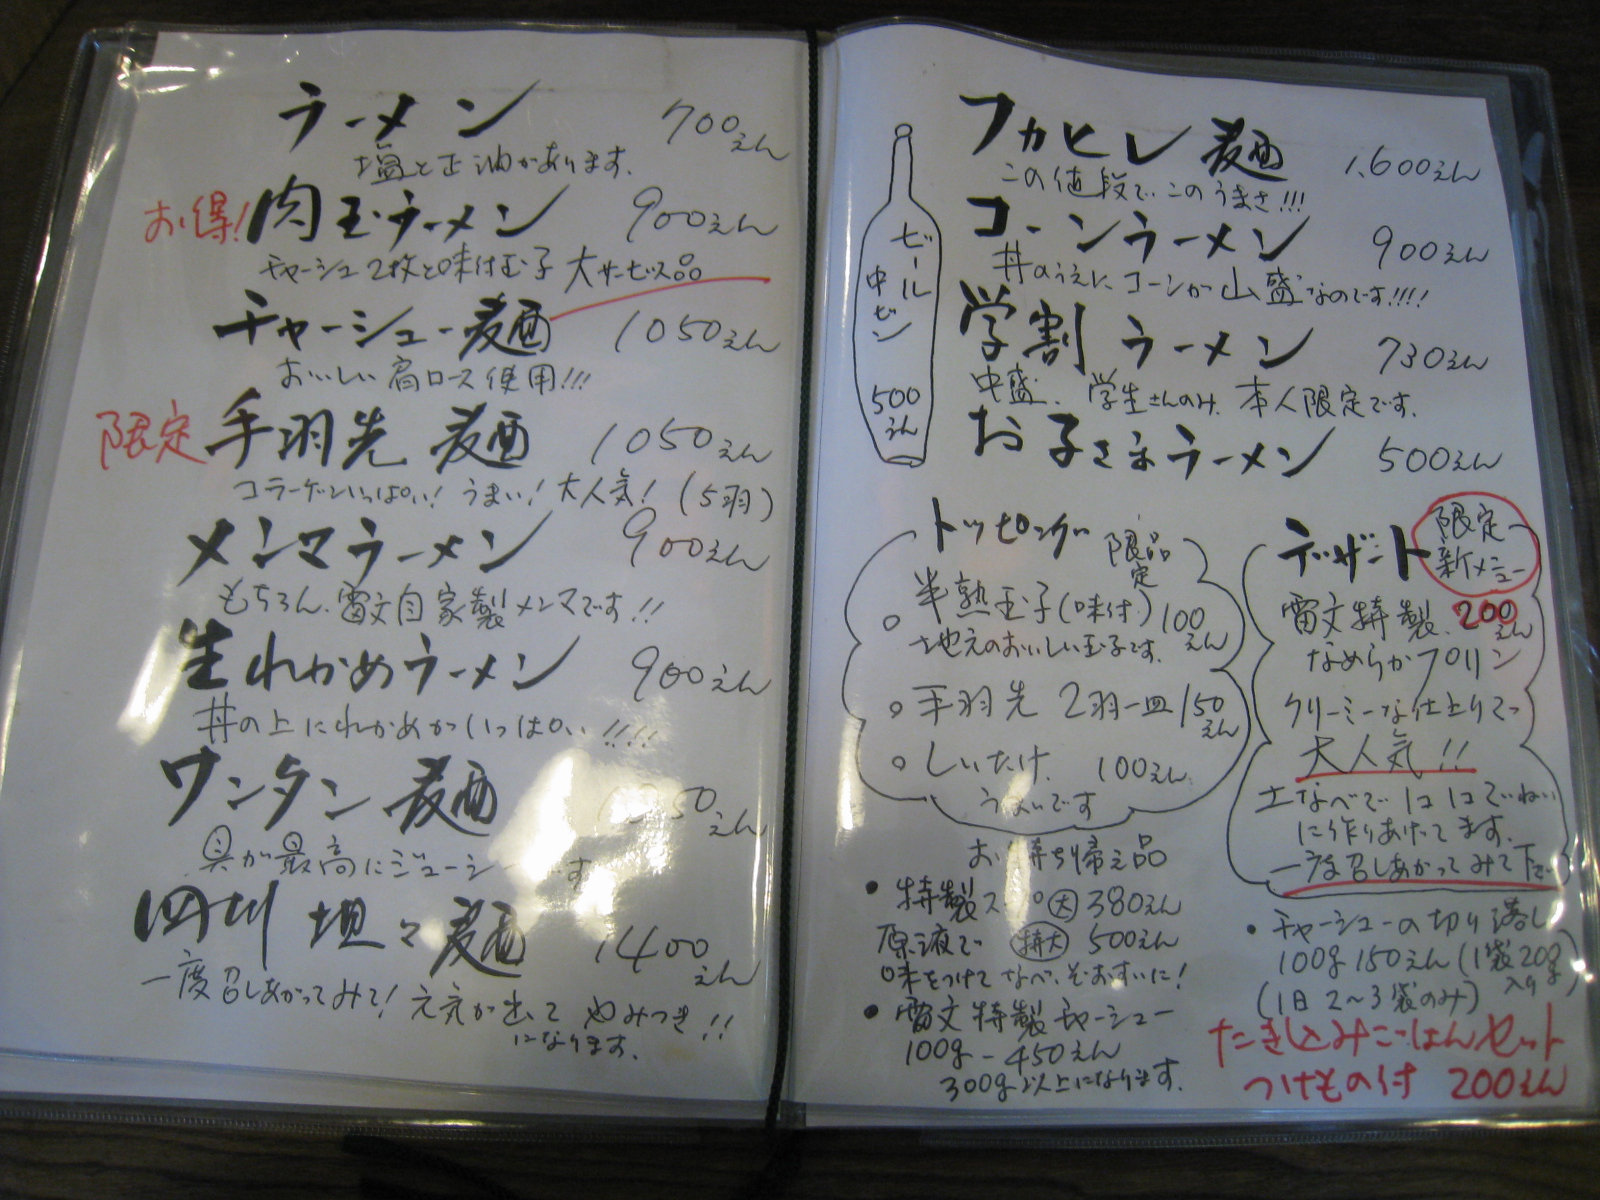 ラーメン 700えん
塩と正油があります。
お得! 肉玉ラーメン 900えん
チャーシュー2枚と味付玉子 大サービス品
チャーシュー麺 1050えん
おいしい肩ロース使用!!!
限定 手羽先麺 1050えん
コラーゲンいっぱい! うまい! 大人気! (5羽)
メンマラーメン 900えん
もちろん、雷文自家製メンマです!!
生わかめラーメン 900えん
丼の上にわかめがいっぱい!!!!
ワンタン麺 50えん
具が最高にジューシーです
四川坦々麺 1400えん
一度召しあがってみて! 元気が出てやみつき!!
になります。
フカヒレ麺 1,600えん
この値段でこのうまさ!!!
コーンラーメン 900えん
丼のうえにコーンが山盛なのです!!!!
学割ラーメン 730えん
中盛、学生さんのみ、本人限定です。
お子さまラーメン 500えん
ビール
中ビン
500
えん
トッピング 限定品
○ 半熟玉子(味付) 100えん
地元のおいしい玉子です。
○ 手羽先 2羽一皿 150えん
○ しいたけ 100えん
うまいです
デザート 限定新メニュー
雷文特製 200えん
なめらかプリン
クリーミーな仕上りで
大人気!!
土なべで1コ1コていねい
に作りあげてます。
一度召しあがってみて下さい
お持ち帰え品
・特製スープ 大 380えん
原液で 特大 500えん
味をつけてなべ、ぞおすいに!
・雷文特製チャーシュー
100g-450えん
300g以上になります。
・チャーシューの切り落し
100g 150えん (1袋20g入り)
(1日2~3袋のみ)
たきこみごはんセット
つけもの付 200えん